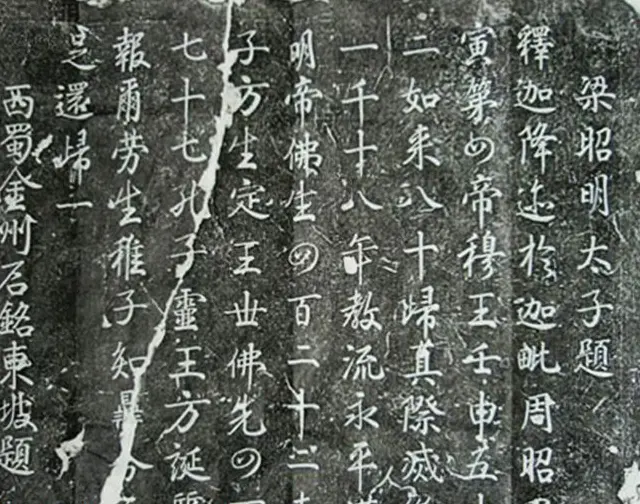 梁昭明太子題
釋迦降迹於迦毗周昭
寅筭四帝穆王壬申五
二如来八十歸真際滅
一千十八年教流永平
明帝佛生四百二十二
子方生定王世佛先四
七十七孔子靈王方誕
報爾劳生稚子知
是還歸一
西蜀金州石銘東坡題